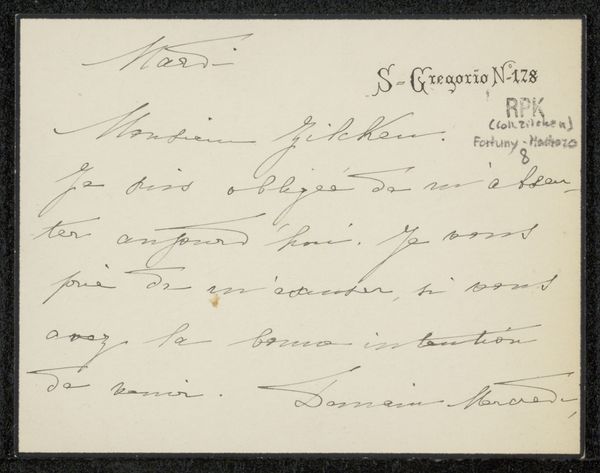 Mardi
S-Gregorio No 178
RPK
(coll. zilcken)
Fortuny-Madrazo
8
Monsieur Zilcken.
Je suis obligée de m'absen-
ter aujourd'hui. Je vous
prie de m'excuser, si vous
avez la bonne intentión
de venir. Demain Mercredi,